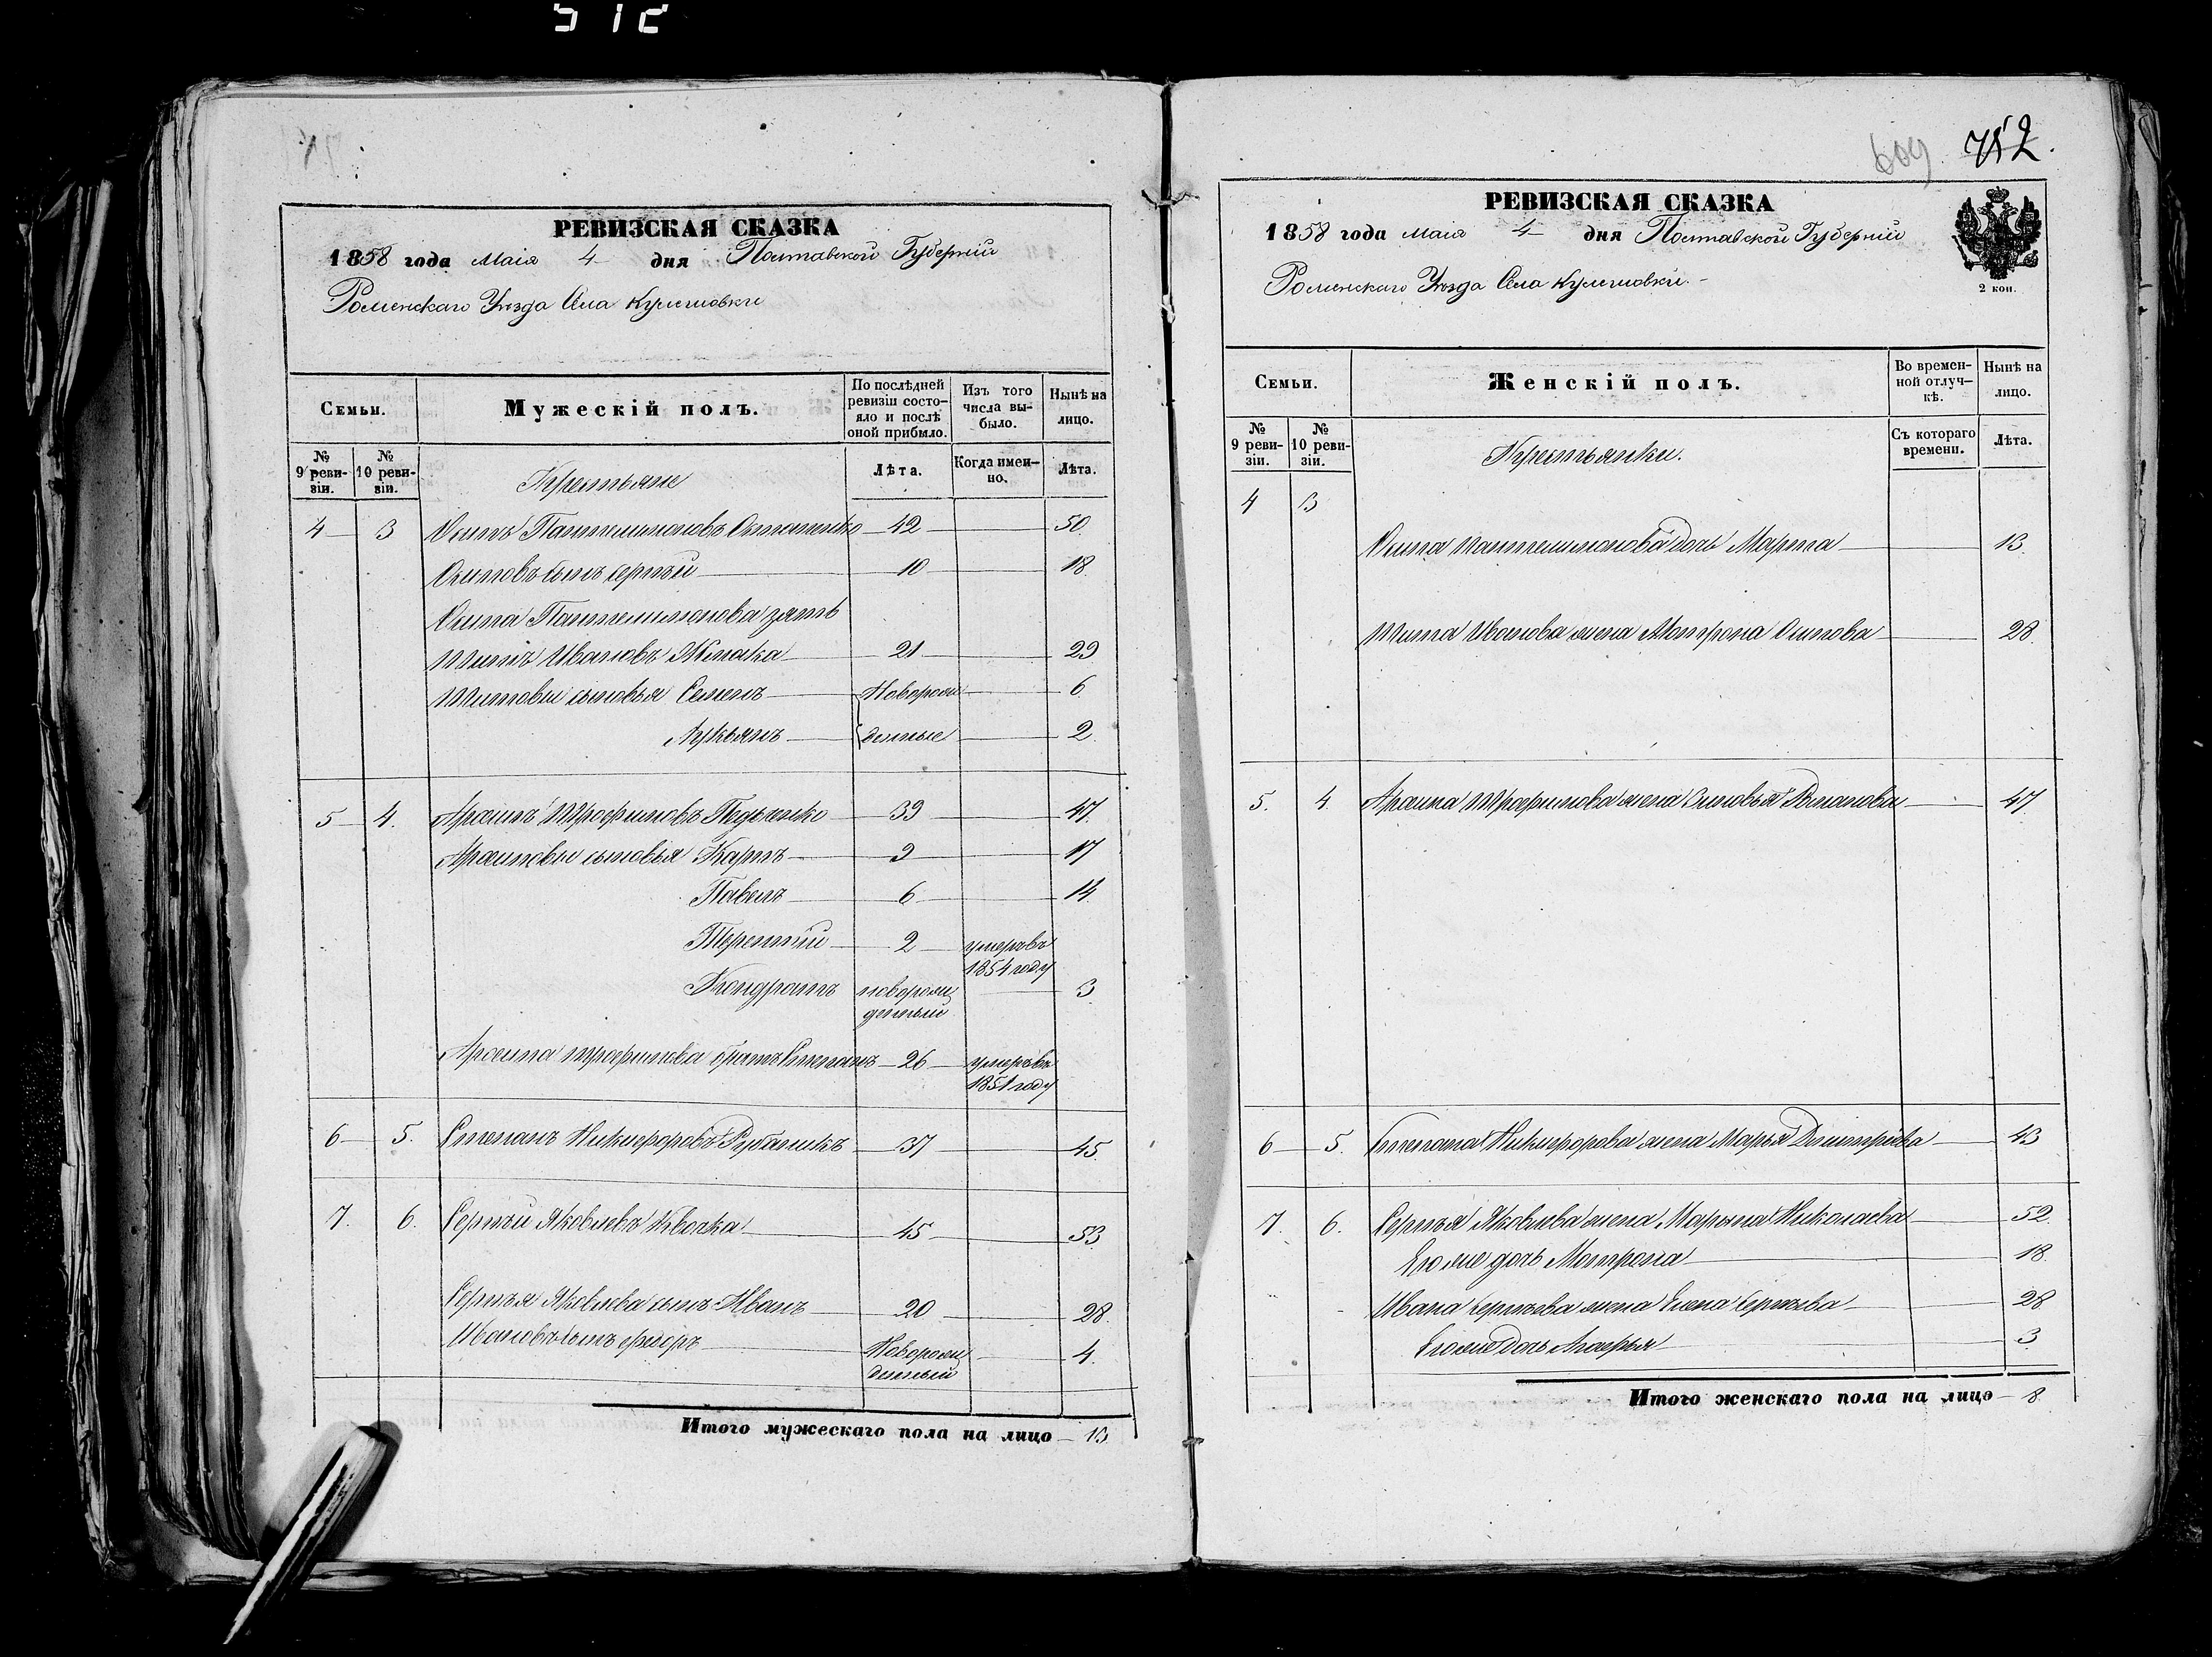 512
РЕВИЗСКАЯ СКАЗКА
1858 года Маія 4 дня Полтавской Губерніи
Роменскаго Уѣзда Села Кулешовки
Семьи.
Мужескій полъ.
По послѣдней ревизіи состояло и послѣ оной прибыло.
Изъ того числа выбыло.
Нынѣ на лицо.
№ 9 ревизіи.
№ 10 ревизіи.
Крестьяне
Лѣта.
Когда именно.
Лѣта.
4 3 Осипъ Пантелимоновъ Остапенко 42 50
Осиповъ сынъ Сергѣй 10 18
Осипа Пантелимонова зять
Титъ Ивановъ 21 29
Титовы сыновья Семенъ Новорож 6
Лукьянъ денные 2
5 4. Архипъ Трофимовъ 39 47.
Архиповы сыновья Карпъ 9 17
Павелъ 6 14
Терентий 2 умеръ въ
1854 году
Кондратъ новорож 3
денный
Архипа Трофимова братъ Степанъ 26 умеръ въ
1851 году
6 5. Степанъ Никифоровъ Рубаникъ 37 45.
7. 6. Сергѣй Яковлевъ Квочка 45 53
Сергѣя Яковлева сынъ Иванъ 20 28.
Ивановъ сынъ Новорож 4.
денный
Итого мужескаго пола на лицо 13
609 752.
РЕВИЗСКАЯ СКАЗКА
1858 года Маія 4 дня Полтавской Губерніи
Роменскаго Уѣзда Села Кулешовки.
2 коп.
Семьи.
Женскій полъ.
Во временной отлучкѣ.
Нынѣ на лицо.
№ 9 ревизіи.
№ 10 ревизіи.
Крестьянки.
Съ котораго времени.
Лѣта.
4 3
Осипа Пантелимонова дочь Марта 13.
Тита Иванова жена Мотрона Осипова 28
5. 4. Архипа Трофимова жена Зиновья 47
6 5. Степана Никифорова жена Марья Димитріева 43
7. 6. Сергѣя Яковлева жена Марьяна Николаева 52
Его же дочь Мотрона 18.
Ивана Сергѣева жена Елена Сергѣева 28
Его же дочь Агафья 3
Итого женскаго пола на лицо 8